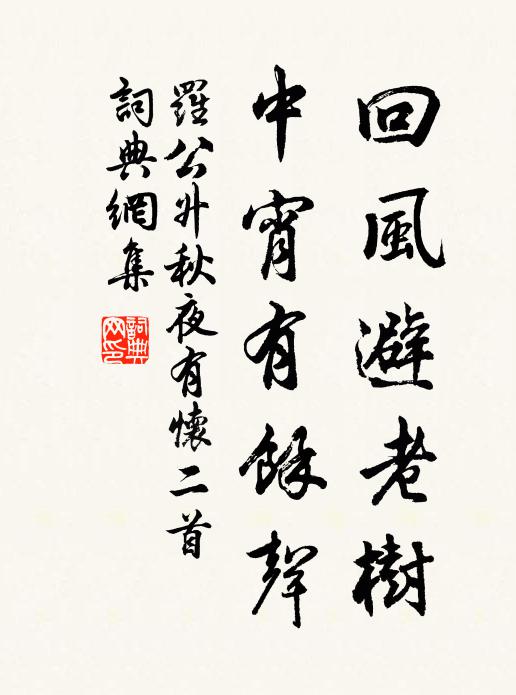 回風避老樹
中宵有餘聲
羅公升秋夜有懷二首
詞典網集
詞典网印